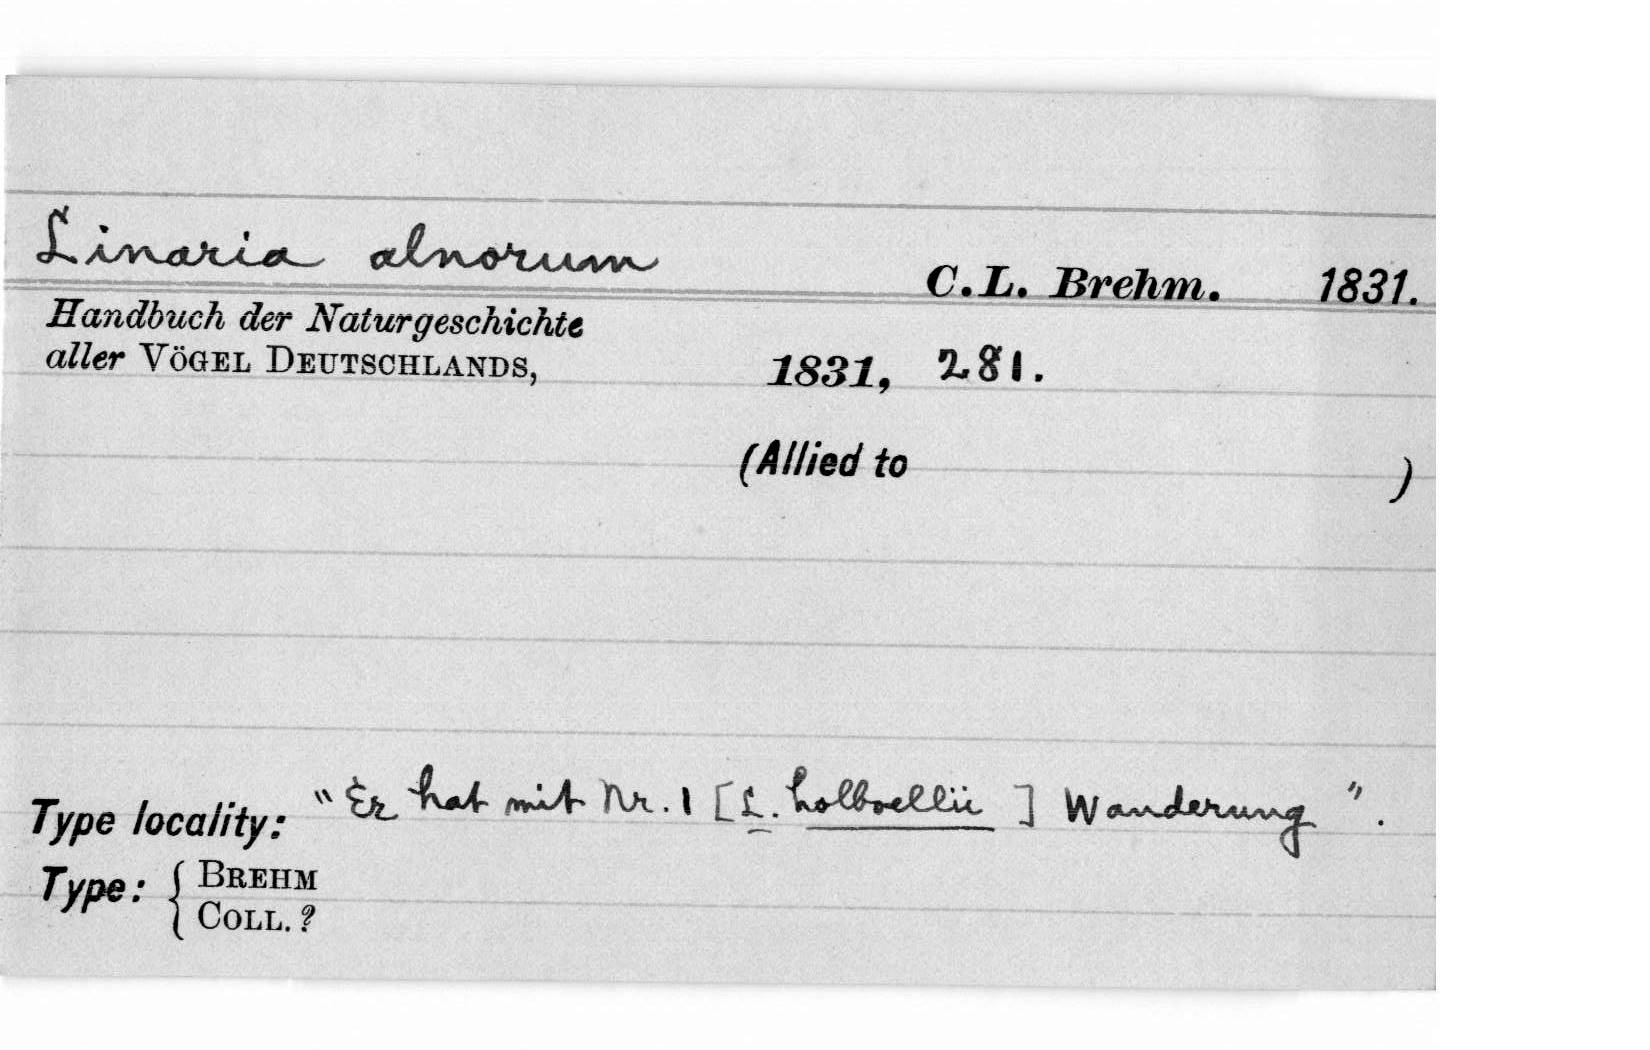 Linaria alnorum C.L. Brehm. 1831.
Handbuch der Naturgeschichte
aller VÖGEL DEUTSCHLANDS, 1831, 281.
(Allied to )
Type locality: "Er hat mit Nr. 1 [L. holboellii] Wanderung".
Type: { BREHM
COLL. ?